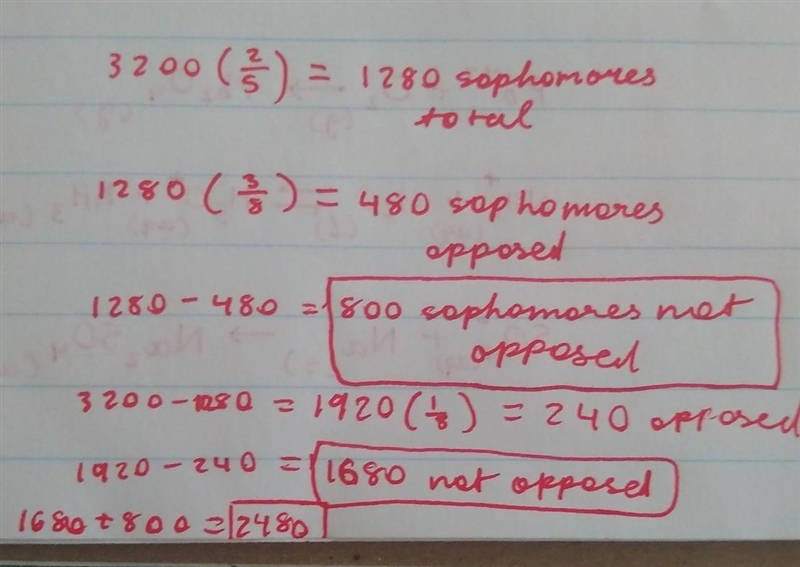 3200 (2/5) = 1280 sophomores
total
1280 (3/8) = 480 sophomores
opposed
1280 - 480 = 800 sophomores not
opposed
3200 - 1280 = 1920 (1/8) = 240 opposed
1920 - 240 = 1680 not opposed
1680 + 800 = 2480